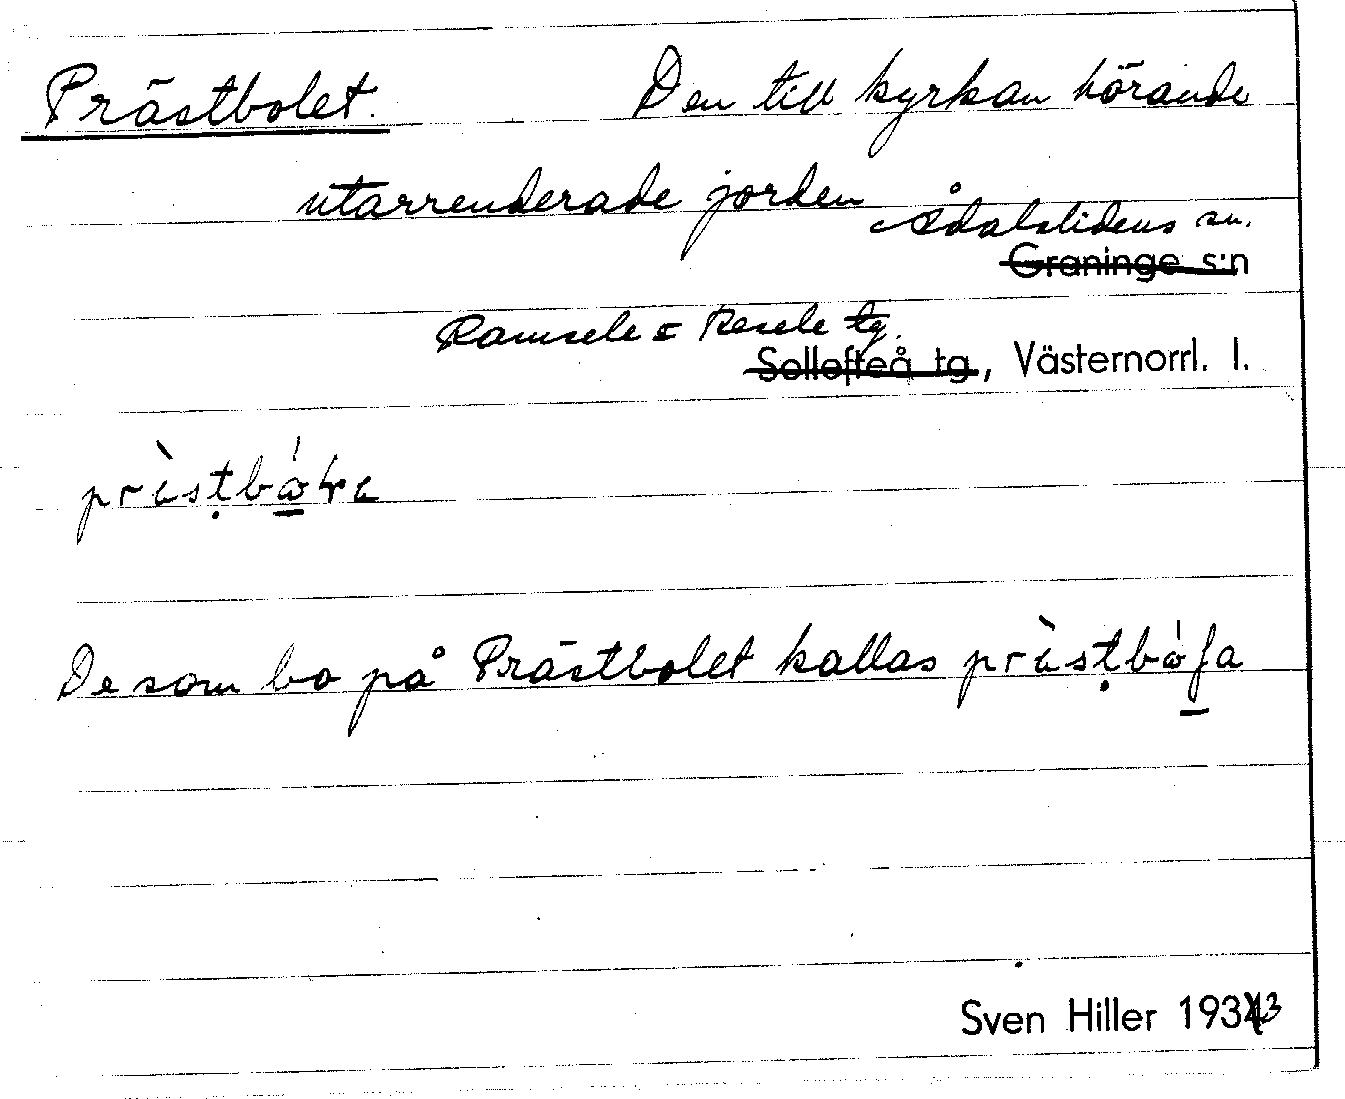 Prästbolet. Den till kyrkan hörande
utarrenderade jorden
Ådalslidens sn.
Graninge s:n
Ramsele o Resele tg.
Sollefteå tg, Västernorrl. l.
De som bo på Prästbolet kallas
Sven Hiller 1933